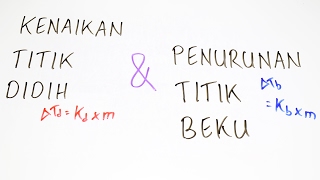 KENAIKAN
TITIK
DIDIH
ΔTd = Kd x m
&
PENURUNAN
TITIK
BEKU
ΔTb
= Kb x m